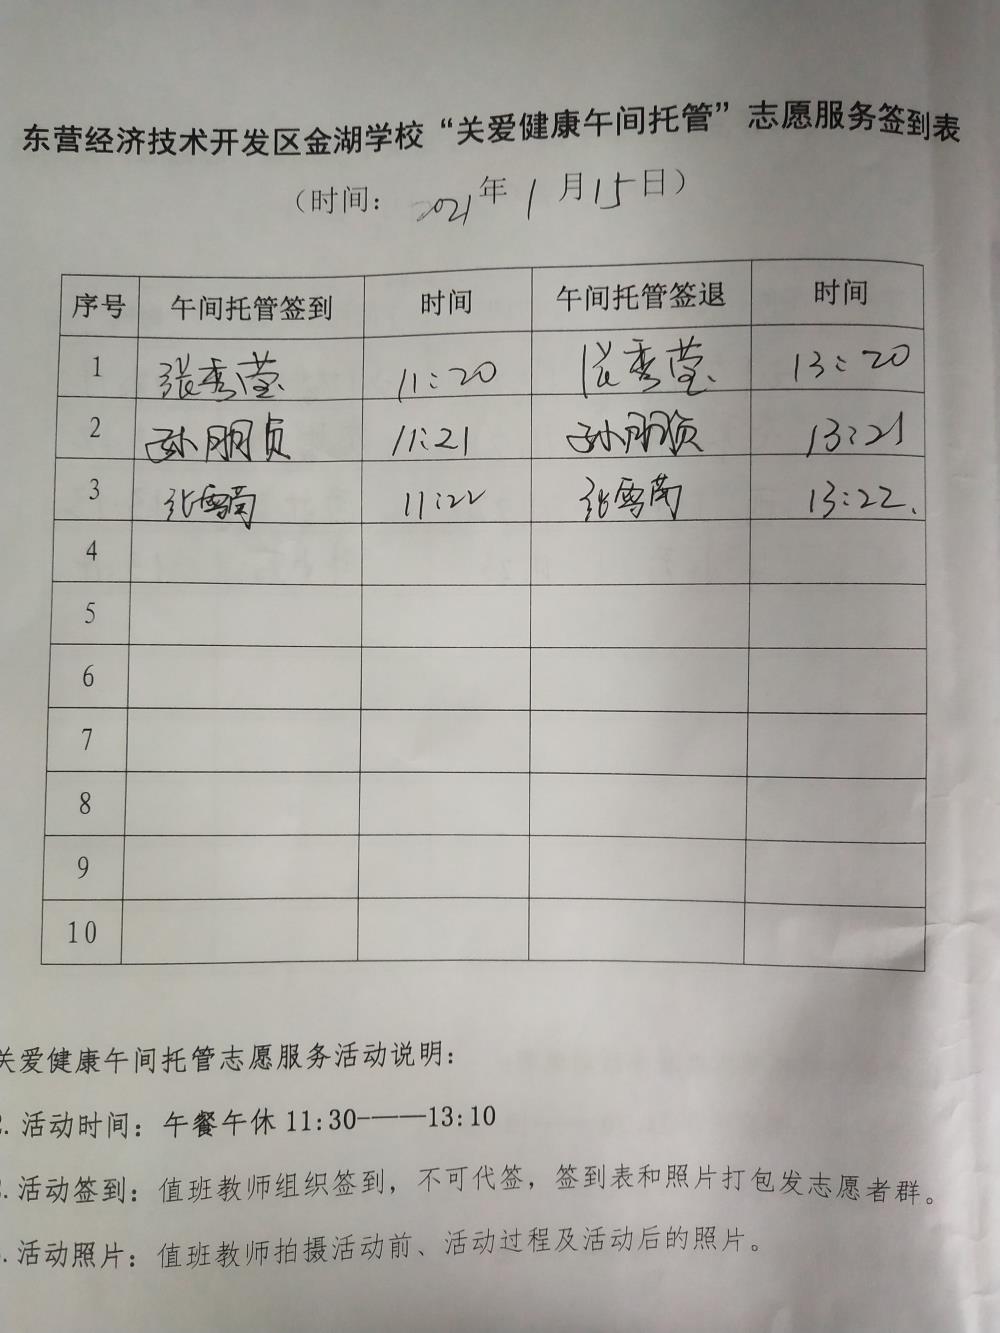 东营经济技术开发区金湖学校“关爱健康午间托管”志愿服务签到表
（时间： 2021年1月15日）
序号 午间托管签到 时间 午间托管签退 时间
1 张秀莹 11:20 张秀莹 13:20
2 孙朋贞 11:21 孙朋贞 13:21
3 张雪菊 11:22 张雪菊 13:22
4
5
6
7
8
9
10
关爱健康午间托管志愿服务活动说明：
2. 活动时间：午餐午休 11:30-——13:10
活动签到：值班教师组织签到，不可代签，签到表和照片打包发志愿者群。
活动照片：值班教师拍摄活动前、活动过程及活动后的照片。